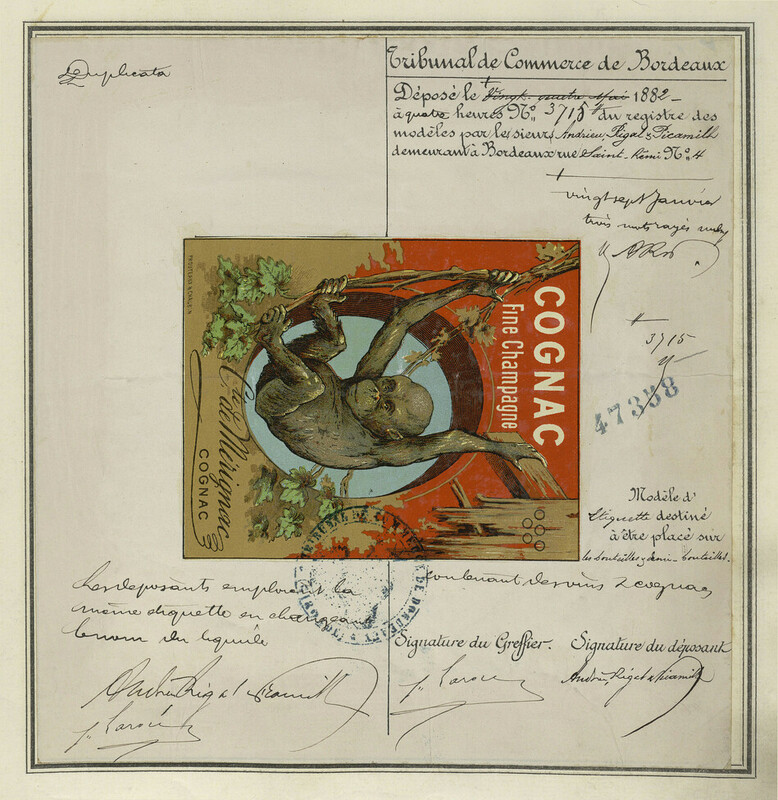 Duplicata
Tribunal de Commerce de Bordeaux
Déposé le vingt quatre Mai 1882
à quatre heures No. 3715 du registre des
modèles par les sieurs Andrieu, Rigal & Picamilh
demeurant à Bordeaux rue Saint-Rémi No. 4
vingt sept Janvier
trois mots rayés nuls
3715
47338
COGNAC
Fine Champagne
Cte de Mérignac
COGNAC
Modèle d'
Etiquette destiné
à être placé sur
les bouteilles & demi-bouteilles.
contenant des vins & cognacs
Les déposants emploient la
même étiquette en changeant
le nom du liquide
Signature du Greffier.
Signature du déposant
TRIBUNAL DE COMMERCE DE BORDEAUX